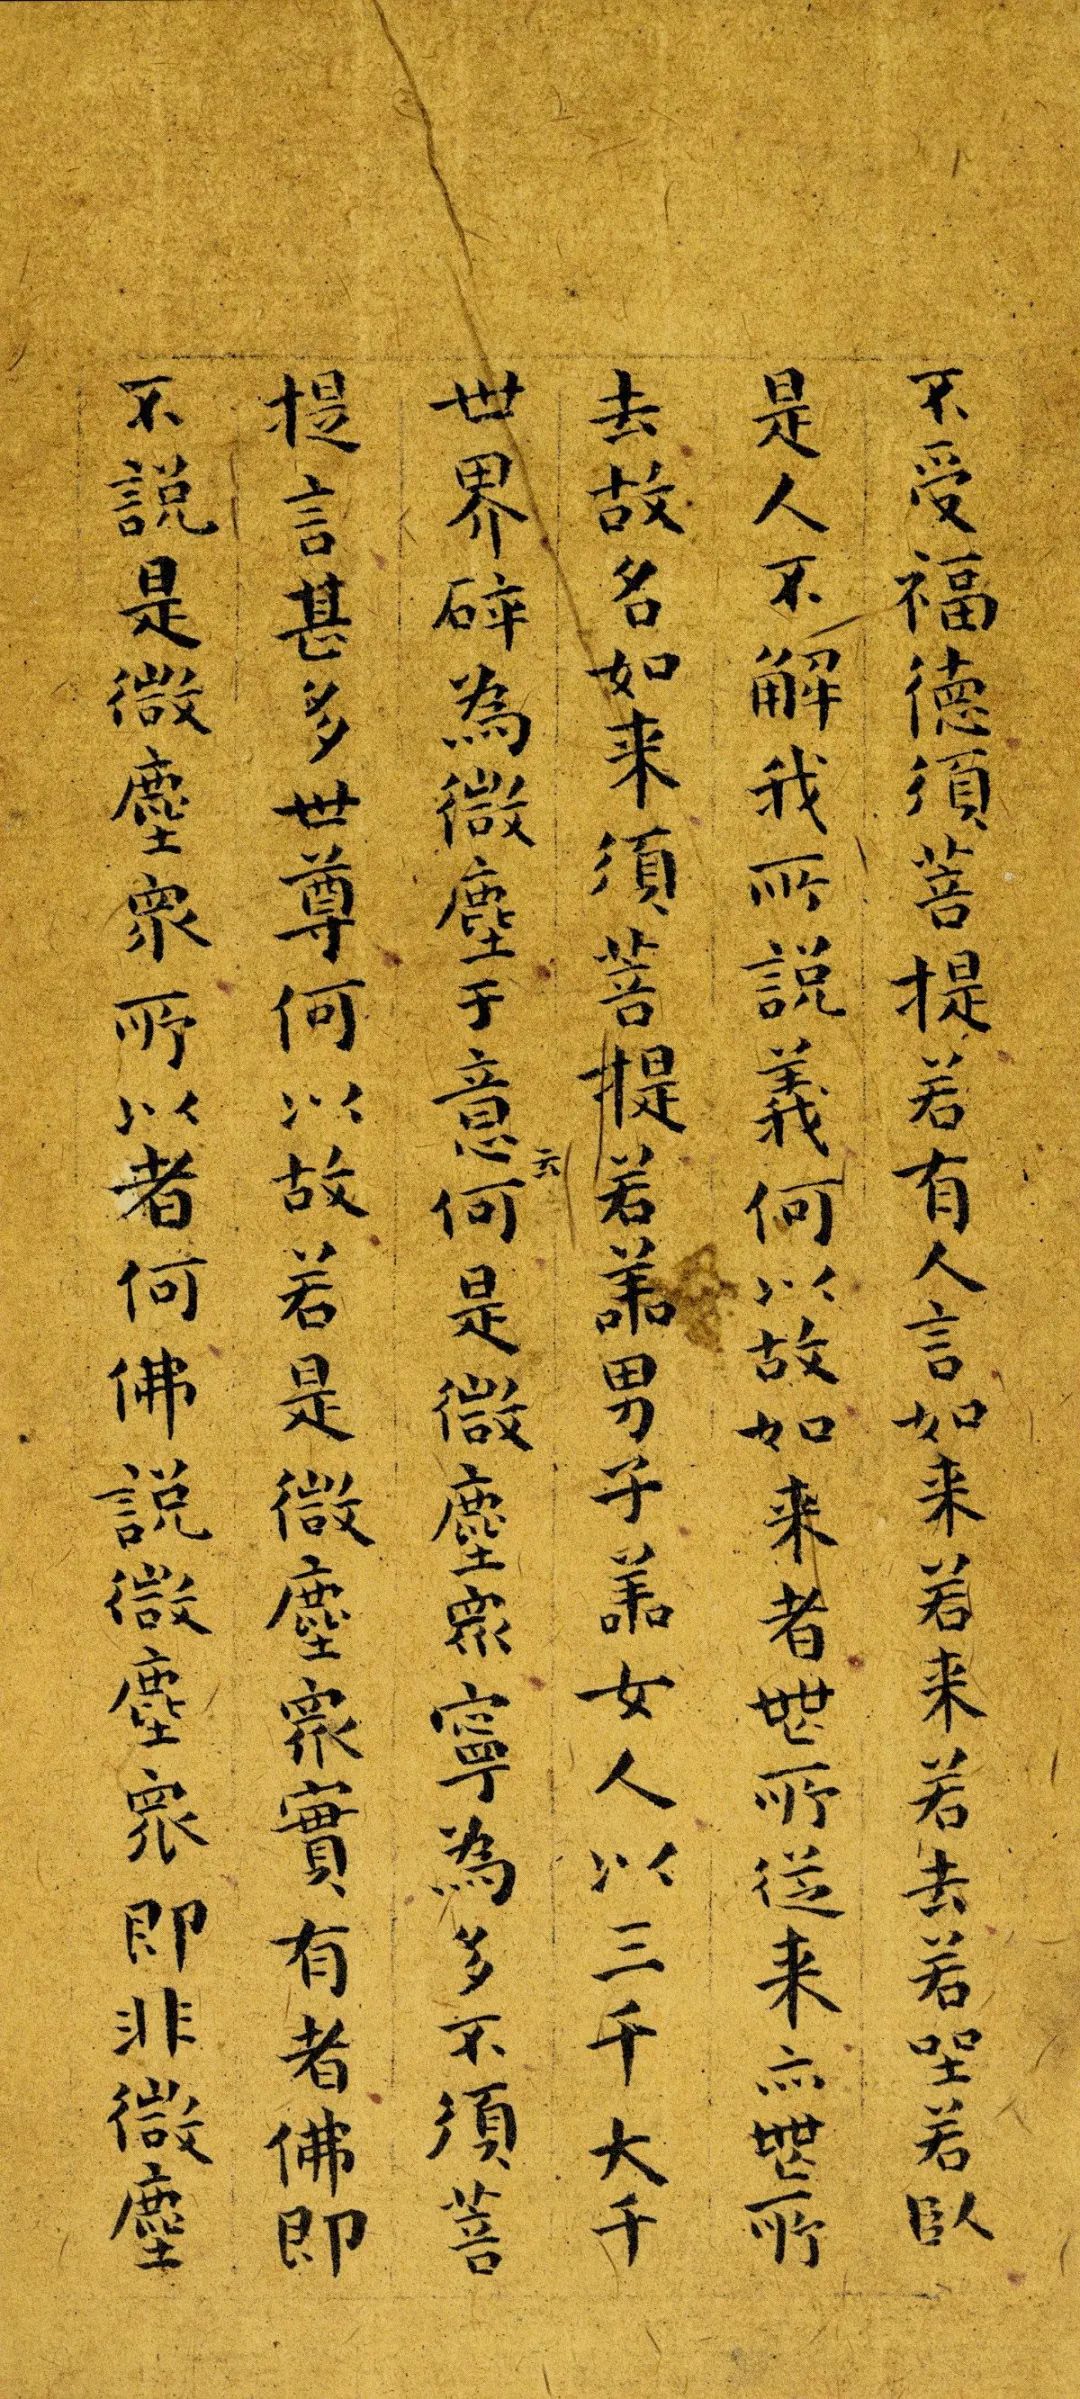 不受福德須菩提若有人言如来若来若去若坐若臥
是人不解我所說義何以故如来者無所從来亦無所
去故名如来須菩提若善男子善女人以三千大千
世界碎為微塵于意云何是微塵衆寧為多不須菩
提言甚多世尊何以故若是微塵衆實有者佛即
不說是微塵衆所以者何佛說微塵衆即非微塵